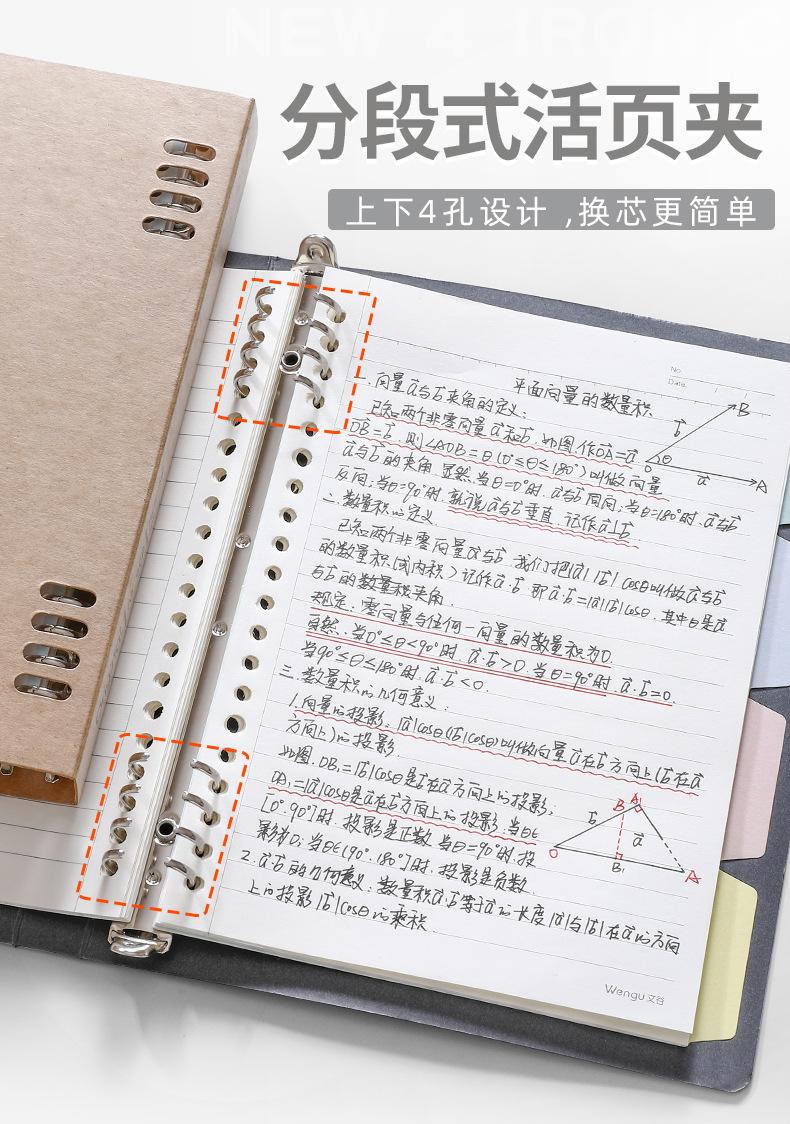 NEW 4 IRON C
分段式活页夹
上下4孔设计 ,换芯更简单
No.
Date.
平面向量的数量积
一.向量a⃗与b⃗夹角的定义:
已知两个非零向量a⃗和b⃗,如图,作OA⃗=a⃗
OB⃗=b⃗,则∠AOB=θ(0°≤θ≤180°)叫做向量
a⃗与b⃗的夹角.显然,当θ=0°时,a⃗与b⃗同向;当θ=180°时,a⃗与b⃗
反向;当θ=90°时,就说a⃗与b⃗垂直,记作a⃗⊥b⃗.
二.数量积的定义
已知两个非零向量a⃗与b⃗,我们把|a⃗||b⃗|cosθ叫做a⃗与b⃗
的数量积(或内积)记作a⃗·b⃗,即a⃗·b⃗=|a⃗||b⃗|cosθ,其中θ是a⃗
与b⃗的数量积夹角.
规定:零向量与任何一向量的数量积为0.
自然,当0°≤θ<90°时,a⃗·b⃗>0.当θ=90°时,a⃗·b⃗=0.
当90°≤θ≤180°时,a⃗·b⃗<0.
三.数量积的几何意义:
1.向量的投影:|a⃗|cosθ(|b⃗|cosθ)叫做向量a⃗在b⃗方向上(b⃗在a⃗
方向上)的投影
如图.OB₁=|b⃗|cosθ是b⃗在a⃗方向上的投影,
OA₁=|a⃗|cosθ是a⃗在b⃗方向上的投影,当θ∈
[0°,90°]时,投影是正数,当θ=90°时,投
影为0;当θ∈(90°,180°]时,投影是负数.
2.a⃗·b⃗的几何意义:数量积a⃗·b⃗等于a⃗的长度|a⃗|与|b⃗|在a⃗的方向
上的投影|b⃗|cosθ的乘积.
B
b⃗
θ
O
a⃗
A
B
b⃗
a⃗
O
B₁
A
Wengu 文谷